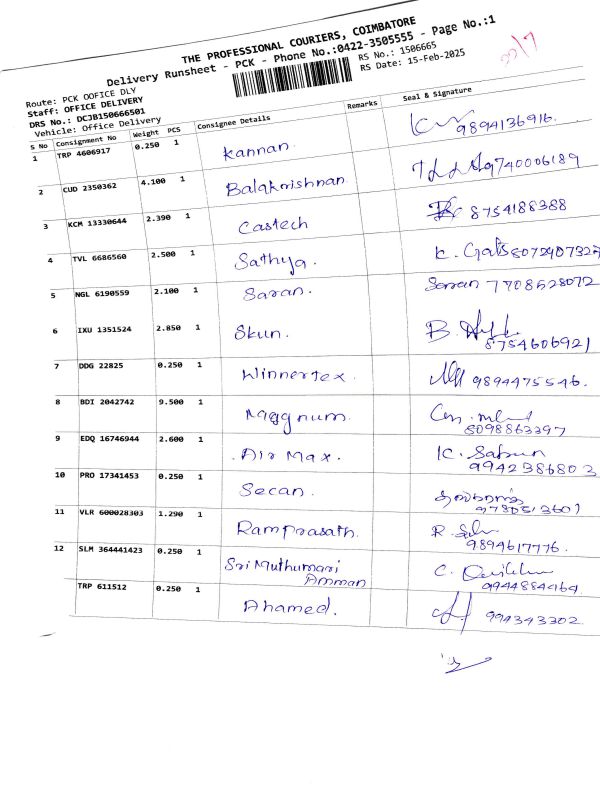 THE PROFESSIONAL COURIERS, COIMBATORE
Delivery Runsheet - PCK - Phone No.:0422-3505555 - Page No.:1
RS No.: 1506665
RS Date: 15-Feb-2025
Route: PCK OOFICE DLY
Staff: OFFICE DELIVERY
DRS No.: DCJB150666501
Vehicle: Office Delivery
S No Consignment No Weight PCS Consignee Details Remarks Seal & Signature
1 TRP 4606917 0.250 1 Kannan. 9894136916.
2 CUD 2350362 4.100 1 Balakrishnan. 9740006189
3 KCM 13330644 2.390 1 Castech 8754188388
4 TVL 6686560 2.500 1 Sathya. K. 8072907327
5 NGL 6190559 2.100 1 Saran. Saran 7708528072
6 IXU 1351524 2.850 1 Skun. B. 8754606921
7 DDG 22825 0.250 1 Winnertex. 9894475546.
8 BDI 2042742 9.500 1 Maggnum. 8098863397
9 EDQ 16746944 2.600 1 Air Max. K. 9942386803
10 PRO 17341453 0.250 1 Secan.
11 VLR 600028303 1.290 1 Ramprasath. R. 9894617776.
12 SLM 364441423 0.250 1 Sri Muthumari
Amman C. 9944884164
TRP 611512 0.250 1 Ahamed. 994343302